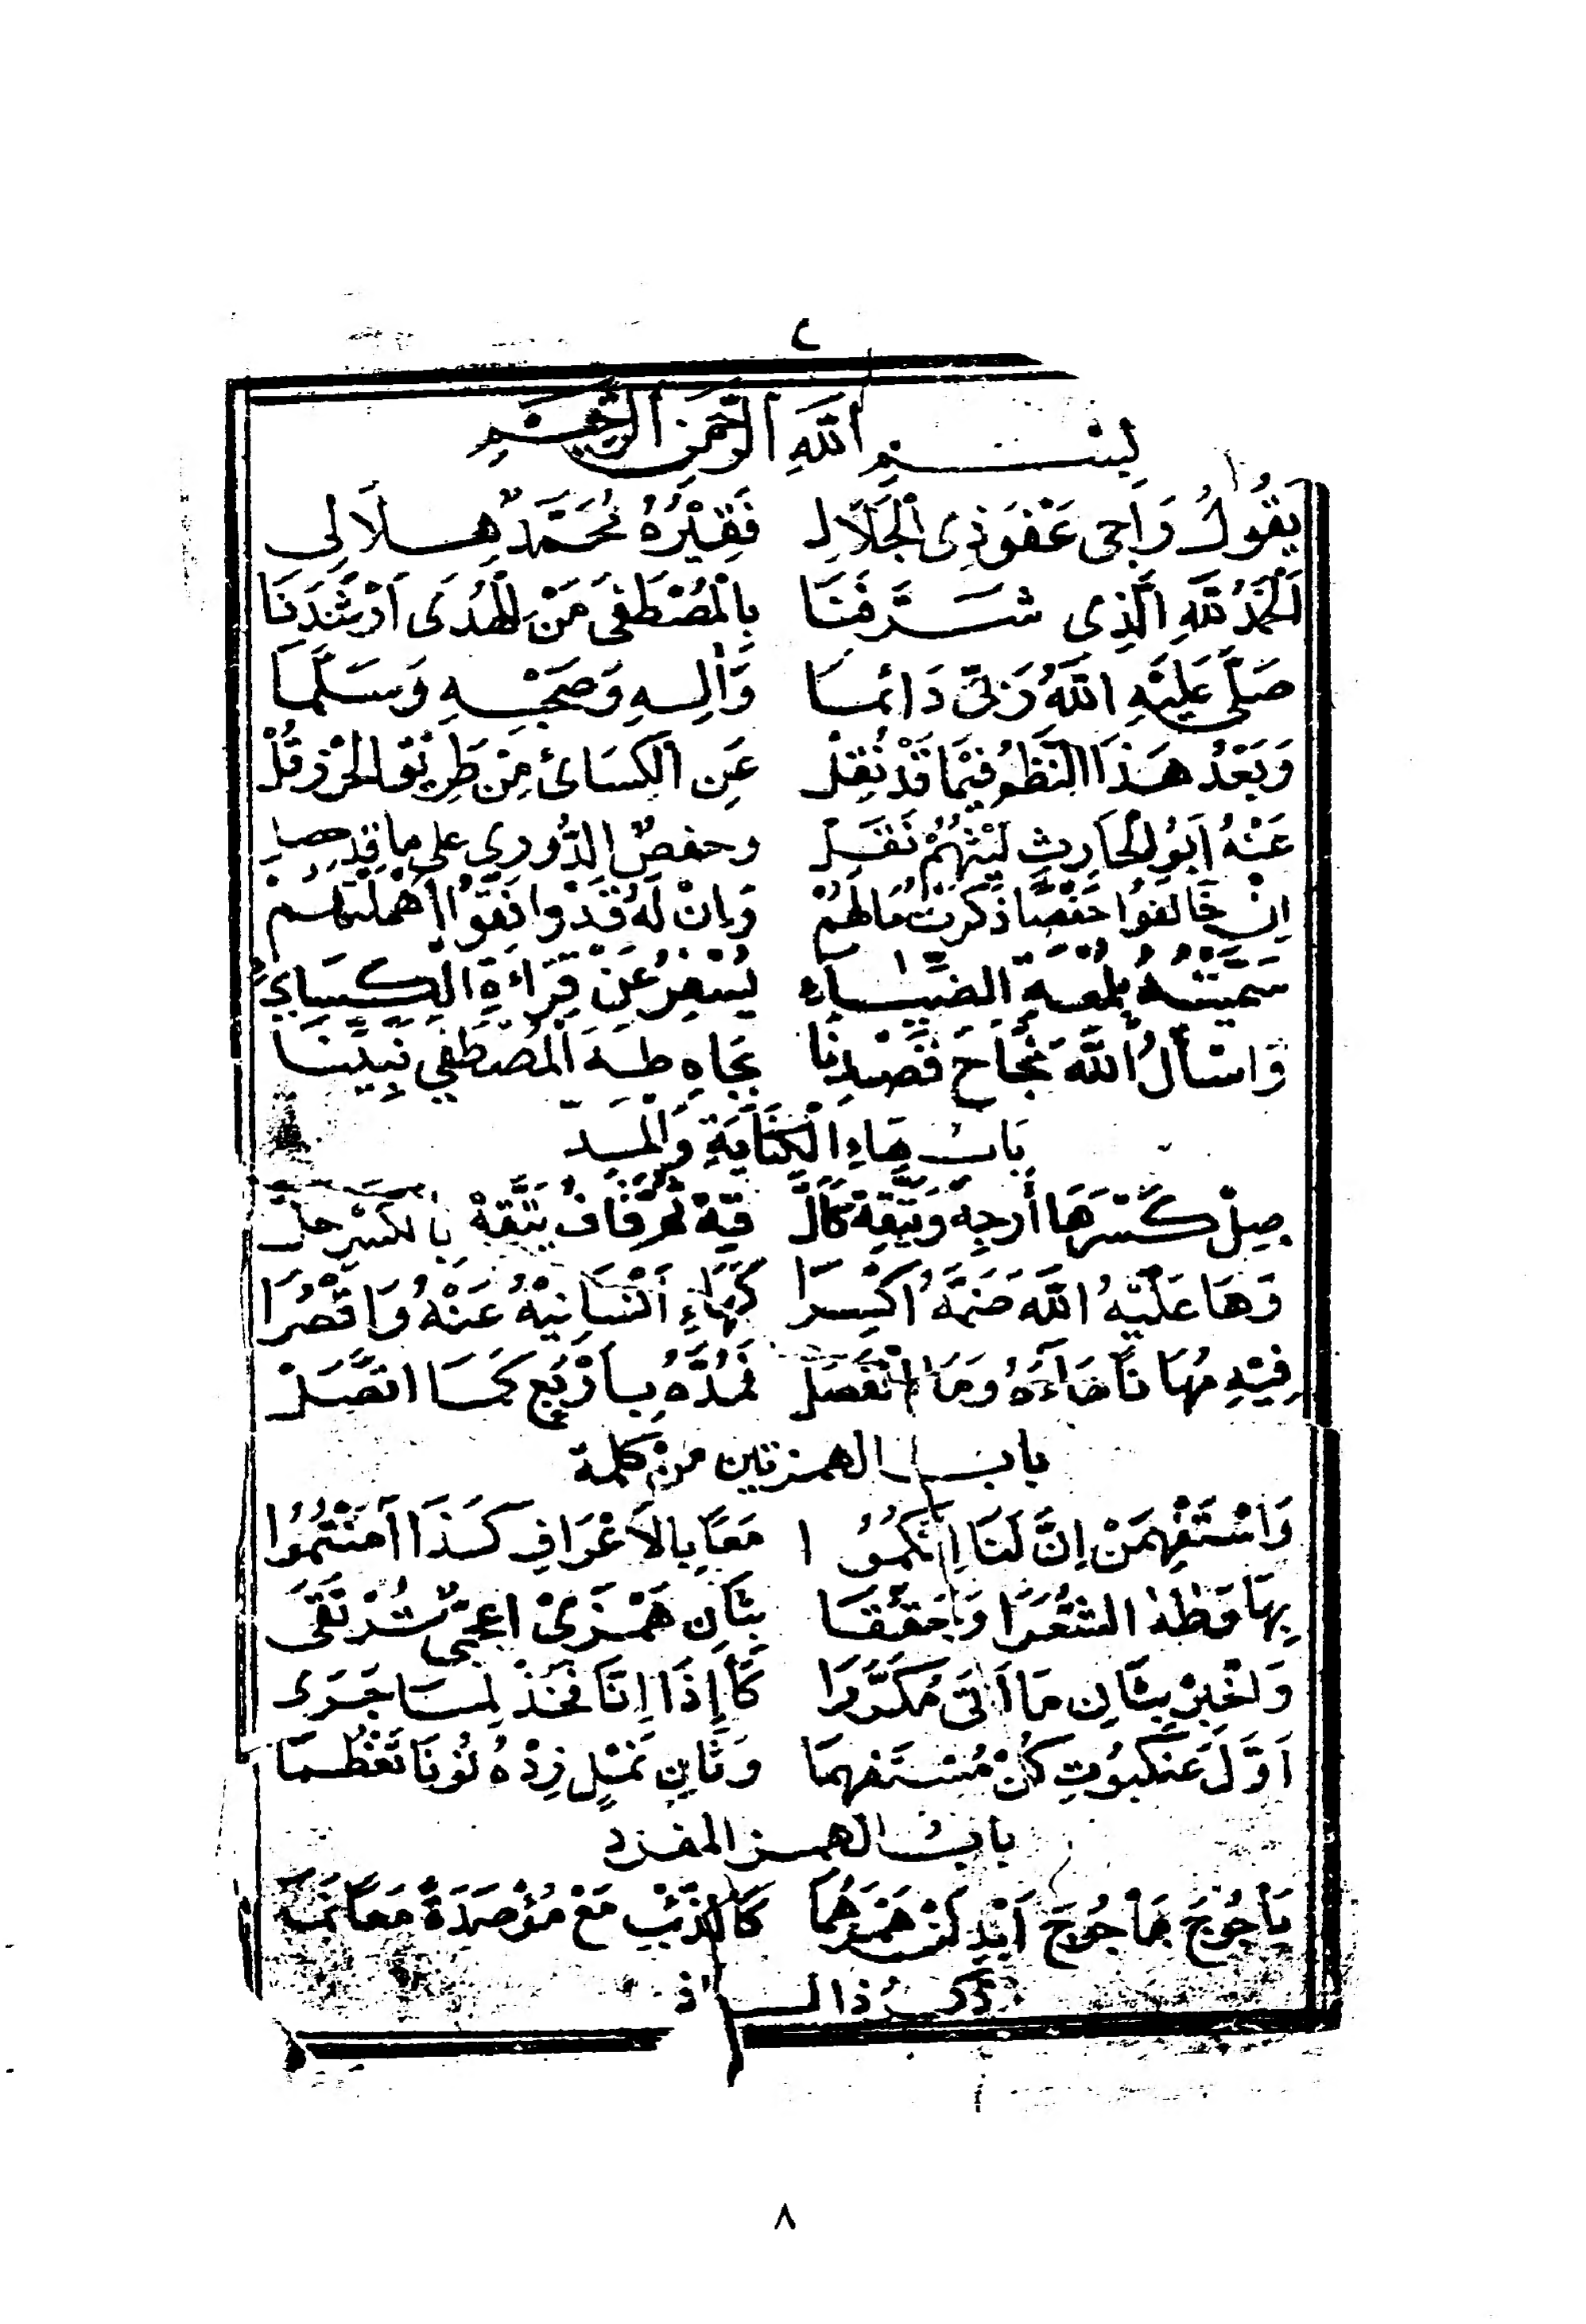 ٢
بِسْمِ اللَّهِ الرَّحْمَنِ الرَّحِيمِ
يَقُولُ رَاجِى عَفْوَ ذِى الْجَلَالِ فَقِيْرُهُ مُحَمَّدٌ هِلَالِى
اَلْحَمْدُ لِلَّهِ الَّذِى شَرَّفَنَا بِالْمُصْطَفَى مَنْ لِلْهُدَى اَرْشَدَنَا
صَلَّى عَلَيْهِ اللَّهُ رَبِّى دَائِمَا وَآلِهِ وَصَحْبِهِ وَسَلَّمَا
وَبَعْدُ هَذَا النَّظْمُ فِيْمَا قَدْ نُقِلْ عَنِ الْكِسَائِى مِنْ طَرِيْقِ الْحِرْزِ قُلْ
عَنْهُ اَبُو الْحَارِثِ لَيْثُهُمْ نَقَلْ وحفصٌ الدُّورِي على ما قد حصل
اِنْ خَالَفُوا حَفْصًا ذَكَرْتُ مَا لَهُمْ وَاِنْ لَهُ قَدْ وَافَقُوا اَهْمَلْتُهُمْ
سَمَّيْتُهُ بِلَمْعَةِ الضِّيَاءِ يُسْفِرُ عَنْ قِرَاءَةِ الْكِسَائِيِ
وَاسْأَلُ اللَّهَ نَجَاحَ قَصْدِنَا بِجَاهِ طَهَ الْمُصْطَفِي نَبِيِّنَا
بَابُ هَاءِ الْكِنَايَةِ وَالْمَدِّ
صِلْ كَسْرَهَا أَرْجِهِ وَيَتَّقِهِ كَأَلْ قِهْ ثُمَّ قَافُ يَتَّقِهْ بِالْكَسْرِ حَلْ
وَهَا عَلَيْهُ اللَّهَ ضَمَّهُ اكْسِرَا كَهَاءِ اَنْسَانِيْهُ عَنْهُ وَاقْصُرَا
فِيْهِ مُهَانًا جَاءَهُ وَمَا انْفَصَلْ فَمُدَّهُ بِاَرْبَعٍ كَمَا اتَّصَلْ
باب الهمزتين من كلمة
وَاسْتَفْهِمَنْ اِنَّ لَنَا اِنَّكُمُوا مَعًا بِالاَعْرَافِ كَذَا آمَنْتُمُوا
بِهَا وَطَهَ الشُّعَرَا وَحَقِّقَا بِثَانِ هَمْزَىْ اعْجَمِىٌّ تُرْتَقَى
وَاَخْبِرْ بِثَانٍ مَا اَتَى مُكَرَّرَا كَأَإِذَا اِنَّا فَخُذْ لِمَا جَرَى
اَوَّلَ عَنْكَبُوتِ كُنْ مُسْتَفْهِمَا وَثَانِ نَمْلٍ زِدْهُ نُوْنًا تَعْظُمَا
بابُ الهمز المفرد
يَأْجُوْجَ مَأْجُوْجَ اَبْدِلَنْ هَمْزَهُمَا كَالذِّئْبِ مَعْ مُؤْصَدَةٌ مَعًا نَمَا
ذكر ذال اذ
٨